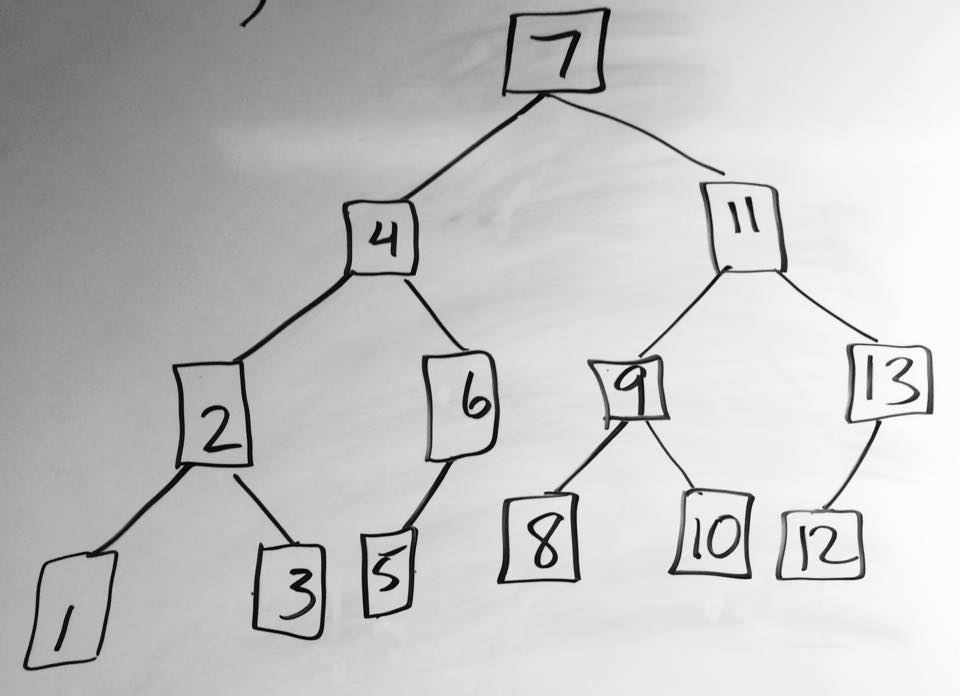 7
4 11
2 6 9 13
1 3 5 8 10 12